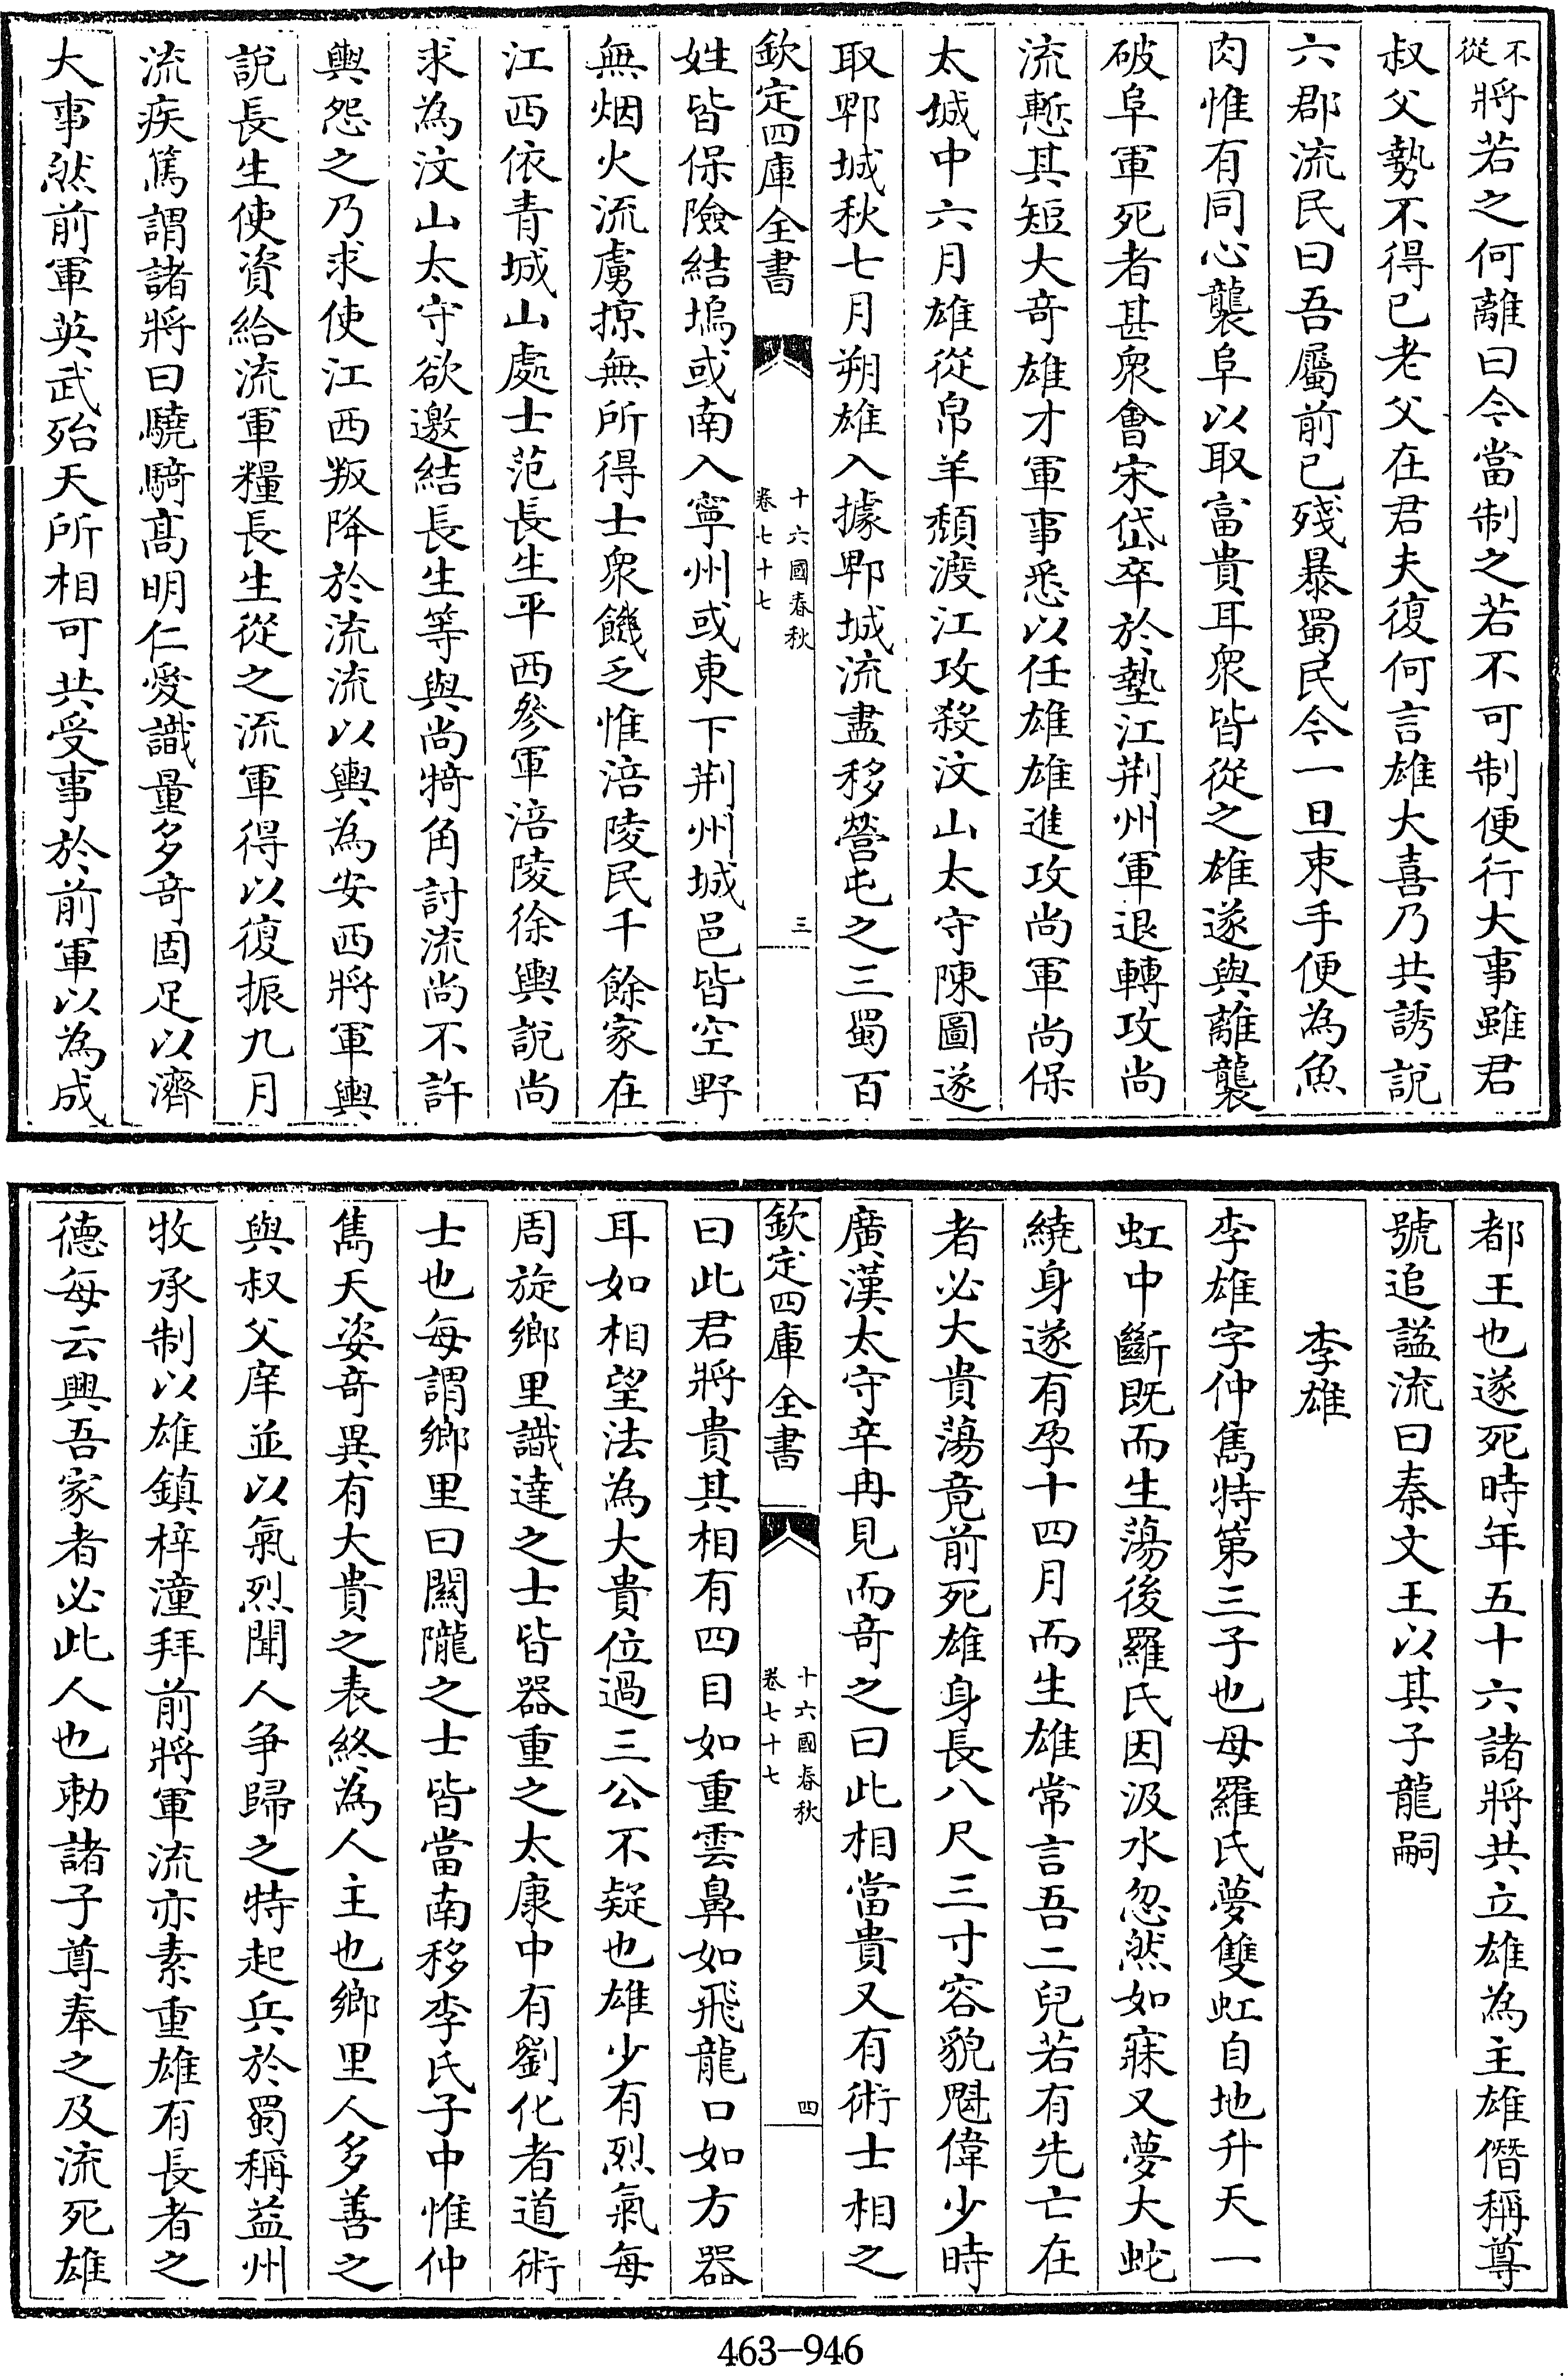 不從將若之何離曰今當制之若不可制便行大事雖君
叔父勢不得已老父在君夫復何言雄大喜乃共誘說
六郡流民曰吾屬前已殘暴蜀民今一旦束手便為魚
肉惟有同心襲阜以取富貴耳衆皆從之雄遂與離襲
破阜軍死者甚衆會宋岱卒於墊江荆州軍退轉攻尚
流慙其短大竒雄才軍事悉以任雄雄進攻尚軍尚保
太城中六月雄從帛羊頹渡江攻殺汶山太守陳圖遂
取郫城秋七月朔雄入據郫城流盡移營屯之三蜀百
欽定四庫全書
十六國春秋
卷七十七
三
姓皆保險結塢或南入寧州或東下荆州城邑皆空野
無烟火流虜掠無所得士衆饑乏惟涪陵民千餘家在
江西依青城山處士范長生平西參軍涪陵徐轝說尚
求為汶山太守欲邀結長生等與尚犄角討流尚不許
轝怨之乃求使江西叛降於流流以轝為安西將軍轝
說長生使資給流軍糧長生從之流軍得以復振九月
流疾篤謂諸將曰驍騎髙明仁愛識量多竒固足以濟
大事然前軍英武殆天所相可共受事於前軍以為成
都王也遂死時年五十六諸將共立雄為主雄僭稱尊
號追諡流曰秦文王以其子龍嗣
李雄
李雄字仲雋特第三子也母羅氏夢雙虹自地升天一
虹中斷既而生蕩後羅氏因汲水忽然如寐又夢大蛇
繞身遂有孕十四月而生雄常言吾二兒若有先亡在
者必大貴蕩竟前死雄身長八尺三寸容貌魁偉少時
廣漢太守辛冉見而竒之曰此相當貴又有術士相之
欽定四庫全書
十六國春秋
卷七十七
四
曰此君將貴其相有四目如重雲鼻如飛龍口如方器
耳如相望法為大貴位過三公不疑也雄少有烈氣每
周旋鄉里識達之士皆器重之太康中有劉化者道術
士也每謂鄉里曰關隴之士皆當南移李氏子中惟仲
雋天姿竒異有大貴之表終為人主也鄉里人多善之
與叔父庠並以氣烈聞人爭歸之特起兵於蜀稱益州
牧承制以雄鎮梓潼拜前將軍流亦素重雄有長者之
德每云興吾家者必此人也勅諸子尊奉之及流死雄
463-946